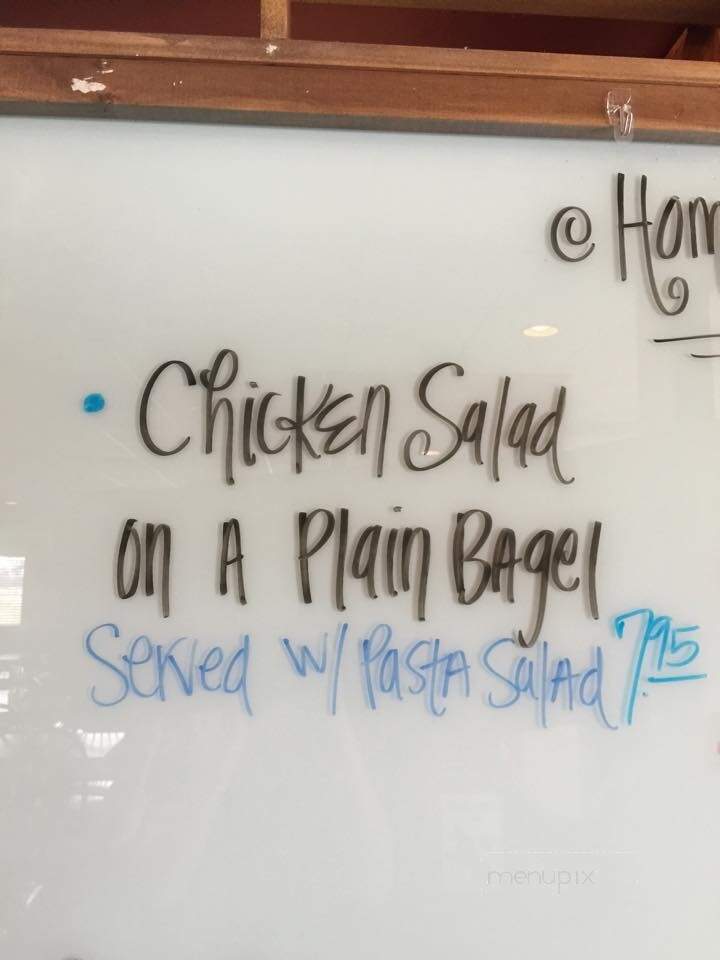 @ Hom
• Chicken Salad
on A Plain Bagel
Served w/ Pasta Salad 7.95
menupix